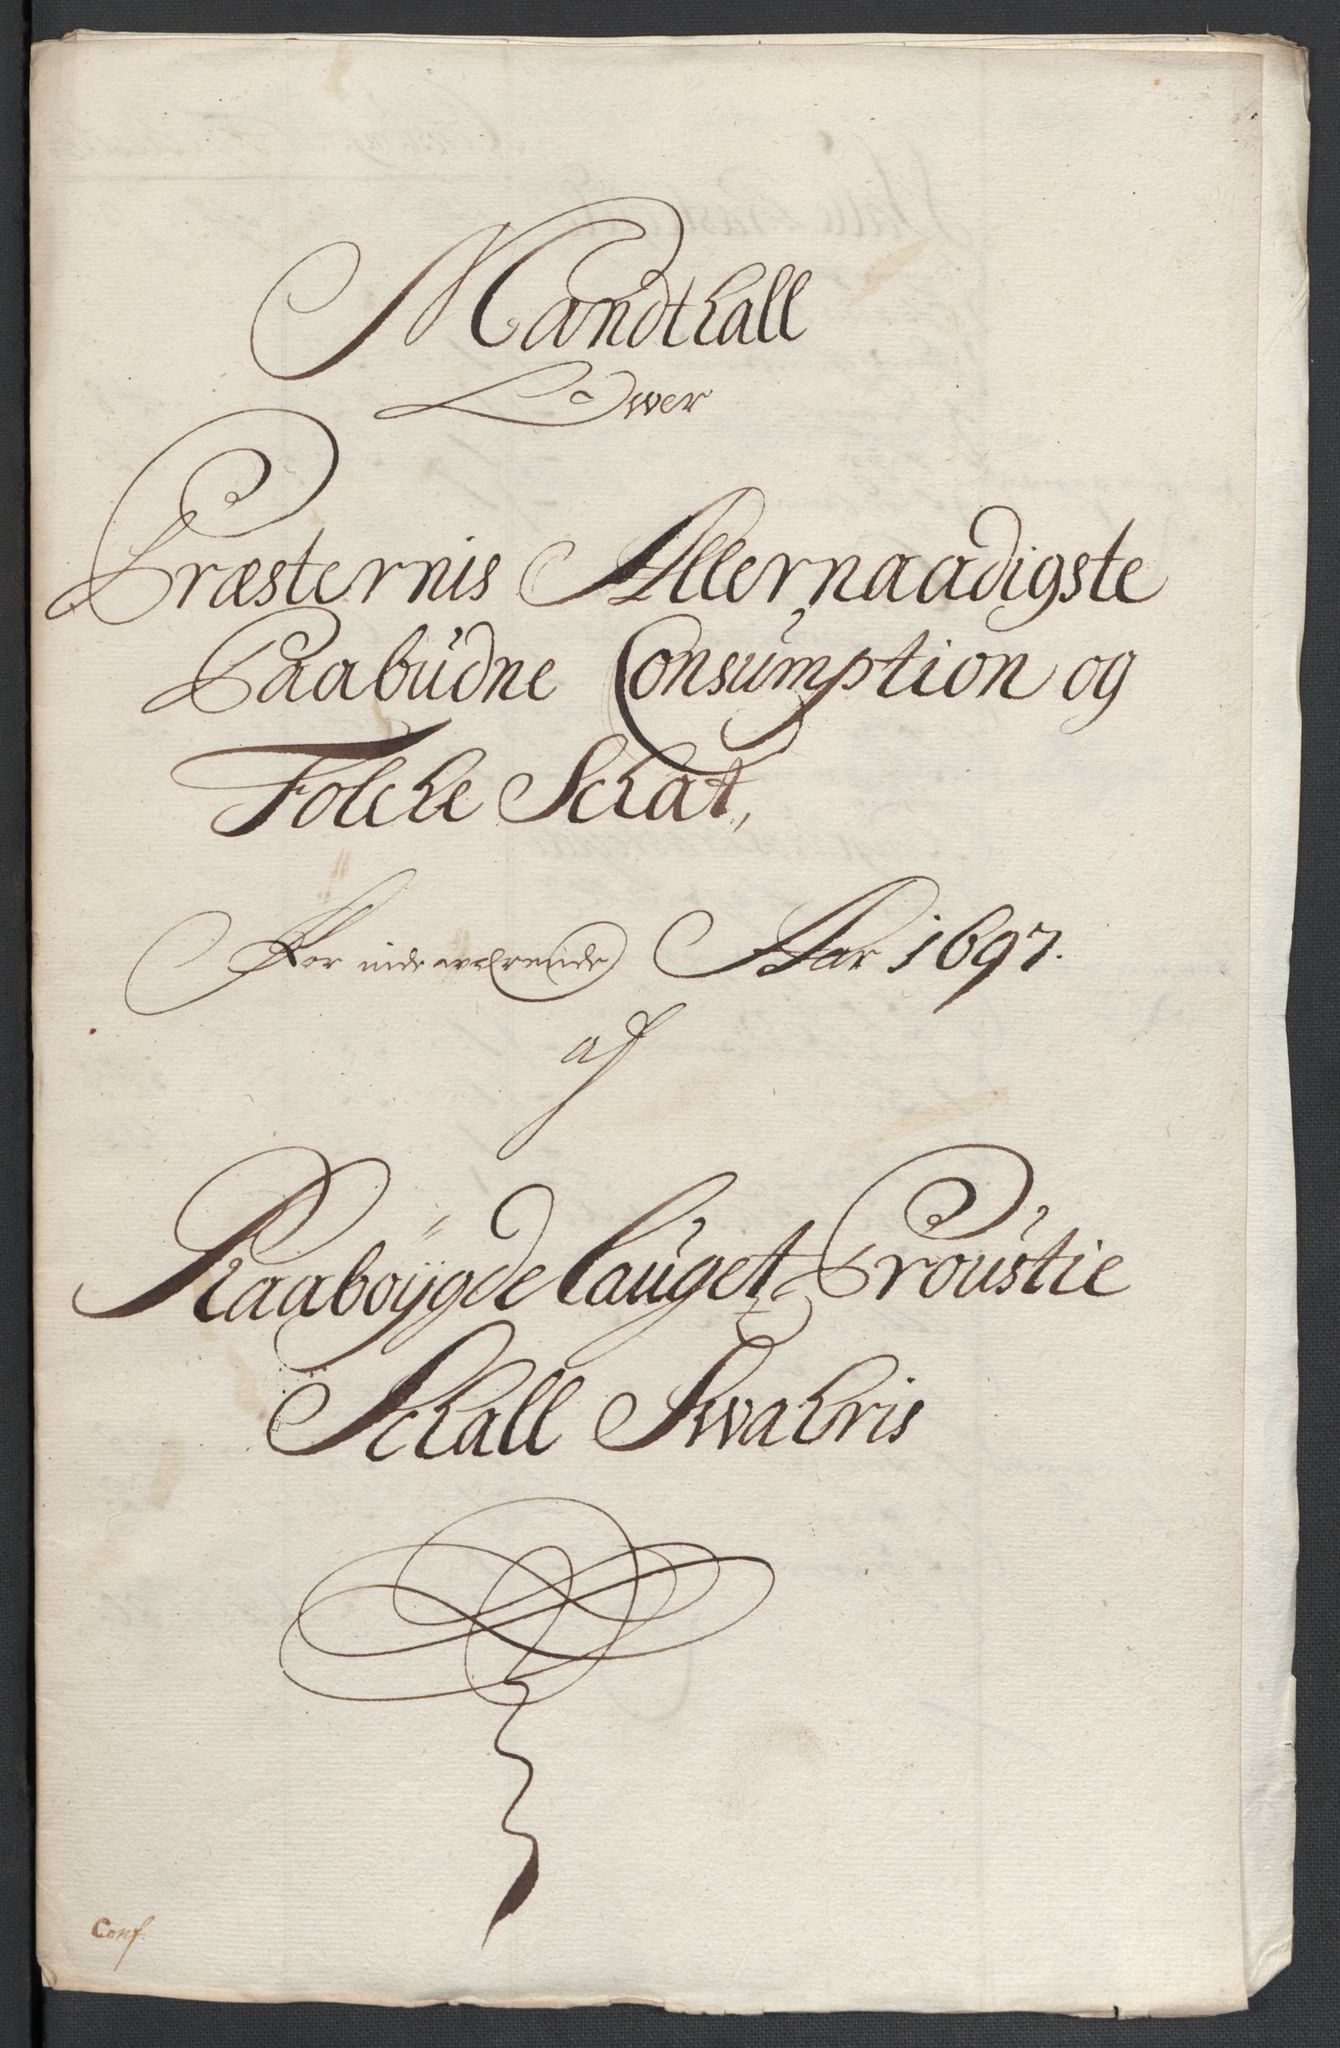 Mandthall
Ofwer
Præsternis Allernaadigste
Paabüdne Consumption og
Folche Schat,
For indeværende Aar 1697.
af
Raabøÿgdelauget Proustie
Schall Swahris
Conf.